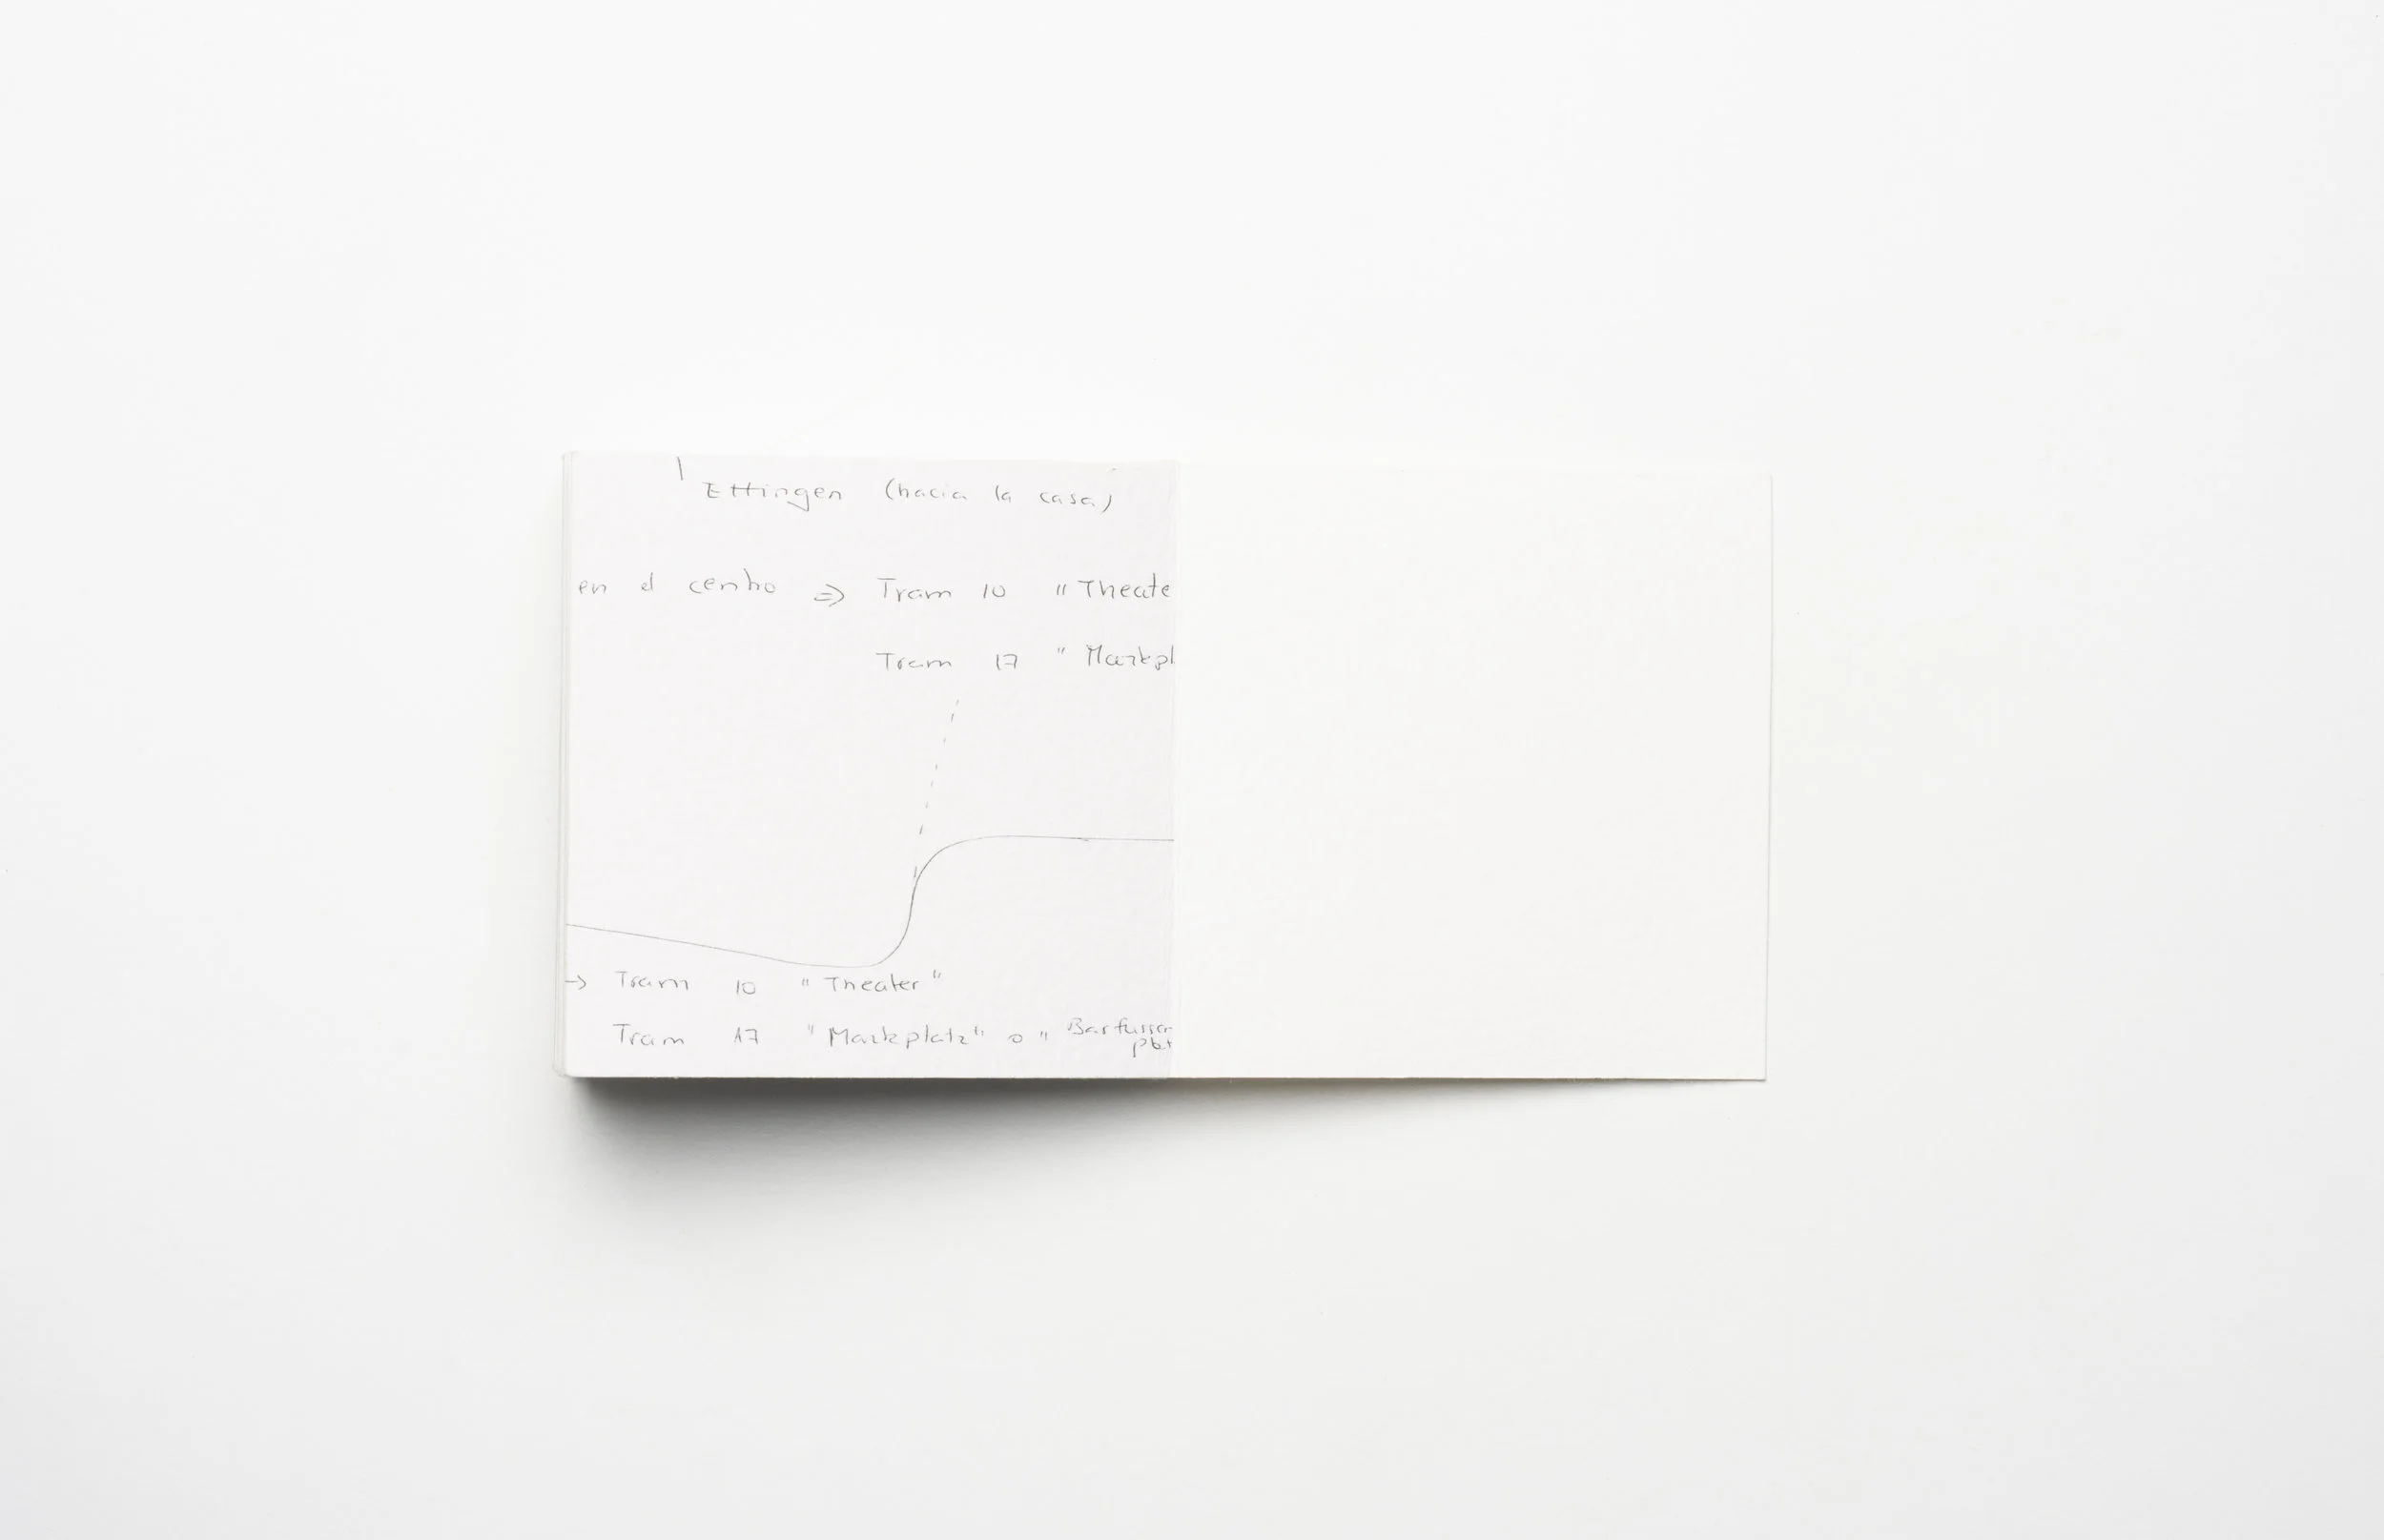 Ettingen (hacia la casa)
en el centro ⇒ Tram 10 "Theate
Tram 17 "Markpl
→ Tram 10 "Theater"
Tram 17 "Markplatz" o "Barfusser
plat